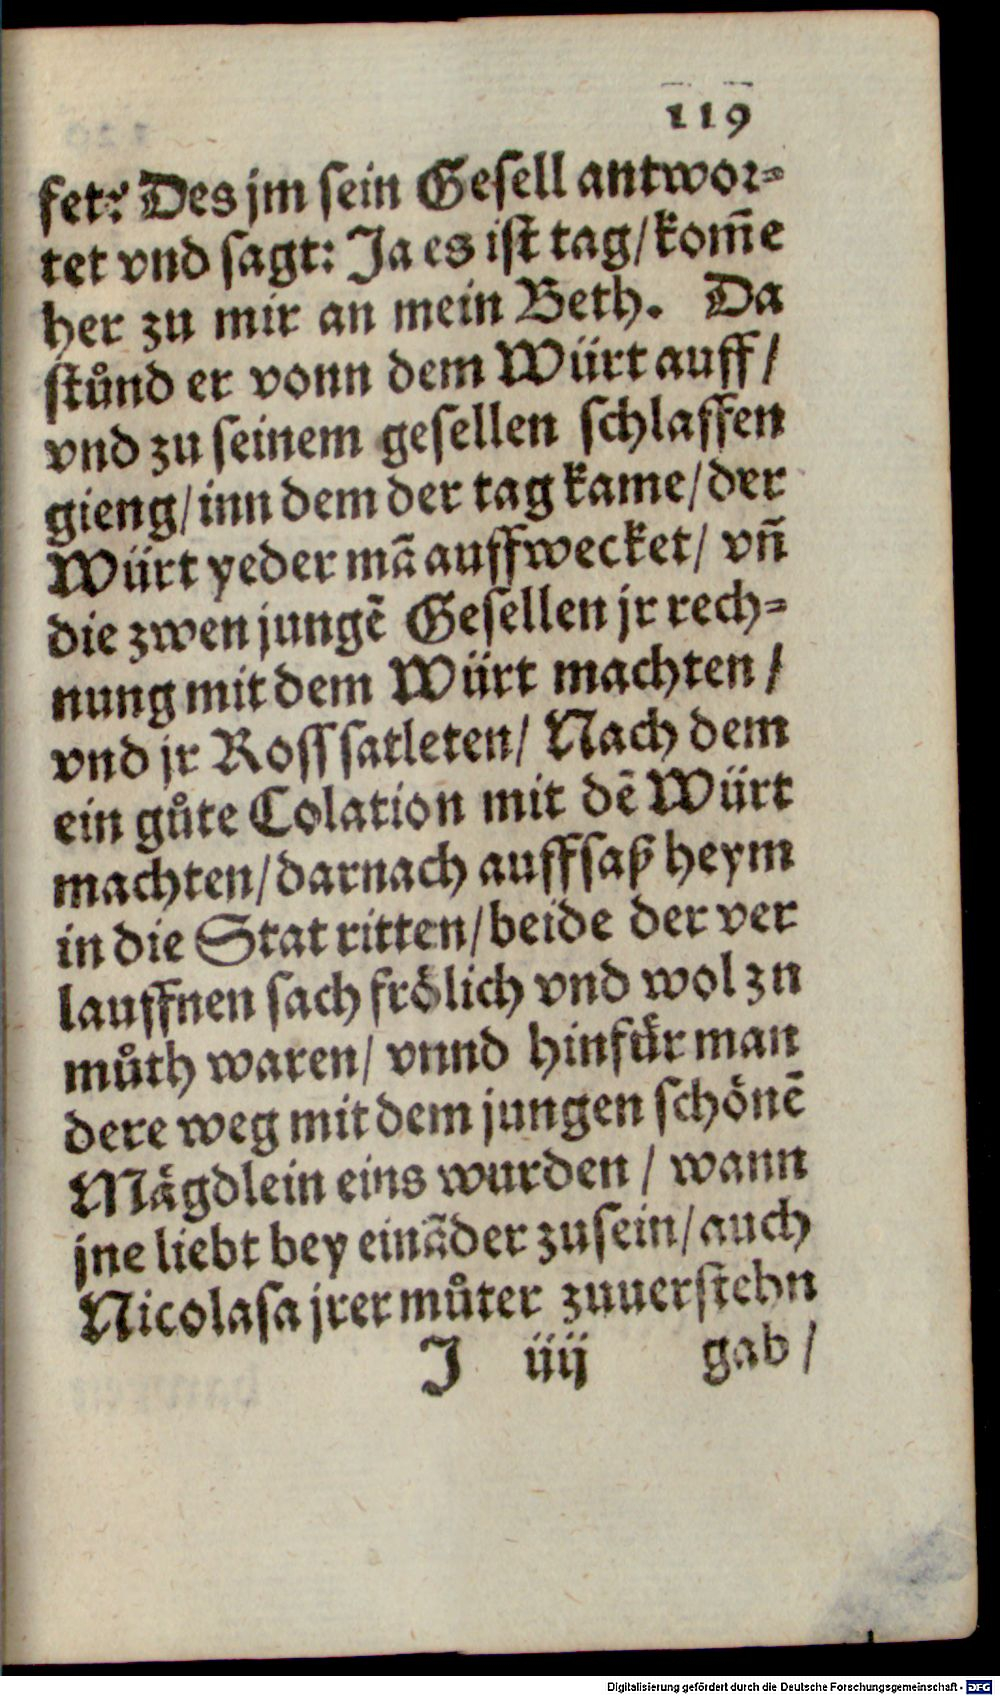 119
fet? Des jm sein Gesell antwor-
tet vnd sagt: Ja es ist tag/kom̃e
her zu mir an mein Beth. Da
stůnd er vonn dem Würt auff/
vnd zu seinem gesellen schlaffen
gieng/inn dem der tag kame/der
Würt yeder mã auffwecket/ vñ
die zwen jungẽ Gesellen jr rech-
nung mit dem Würt machten /
vnd jr Ross satleten/ Nach dem
ein gůte Colation mit dẽ Würt
machten/darnach auffsaß heym
in die Stat ritten/beide der ver
lauffnen sach frölich vnd wol zn
můth waren/ vnnd hinfür man
dere weg mit dem jungen schönẽ
Mägdlein eins wurden / wann
jne liebt bey einãder zusein/auch
Nicolasa jrer můter zuuerstehn
J iiij gab /
Digitalisierung gefördert durch die Deutsche Forschungsgemeinschaft - DFG